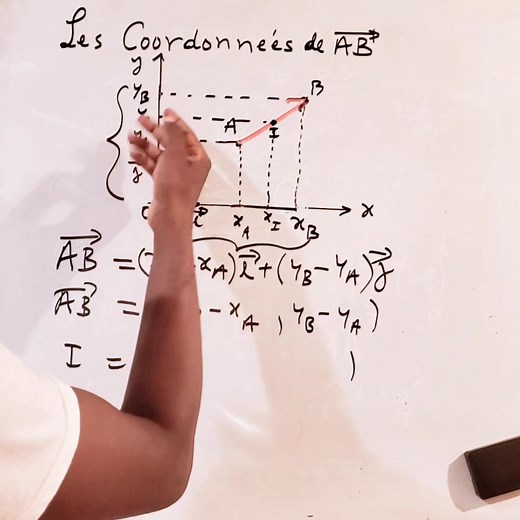 Les Coordonneés de AB
y
y_B
B
A
I
j
x_A x_I x_B x
AB = ( x_A) i + (y_B - y_A) j
AB = - x_A , y_B - y_A )
I = )